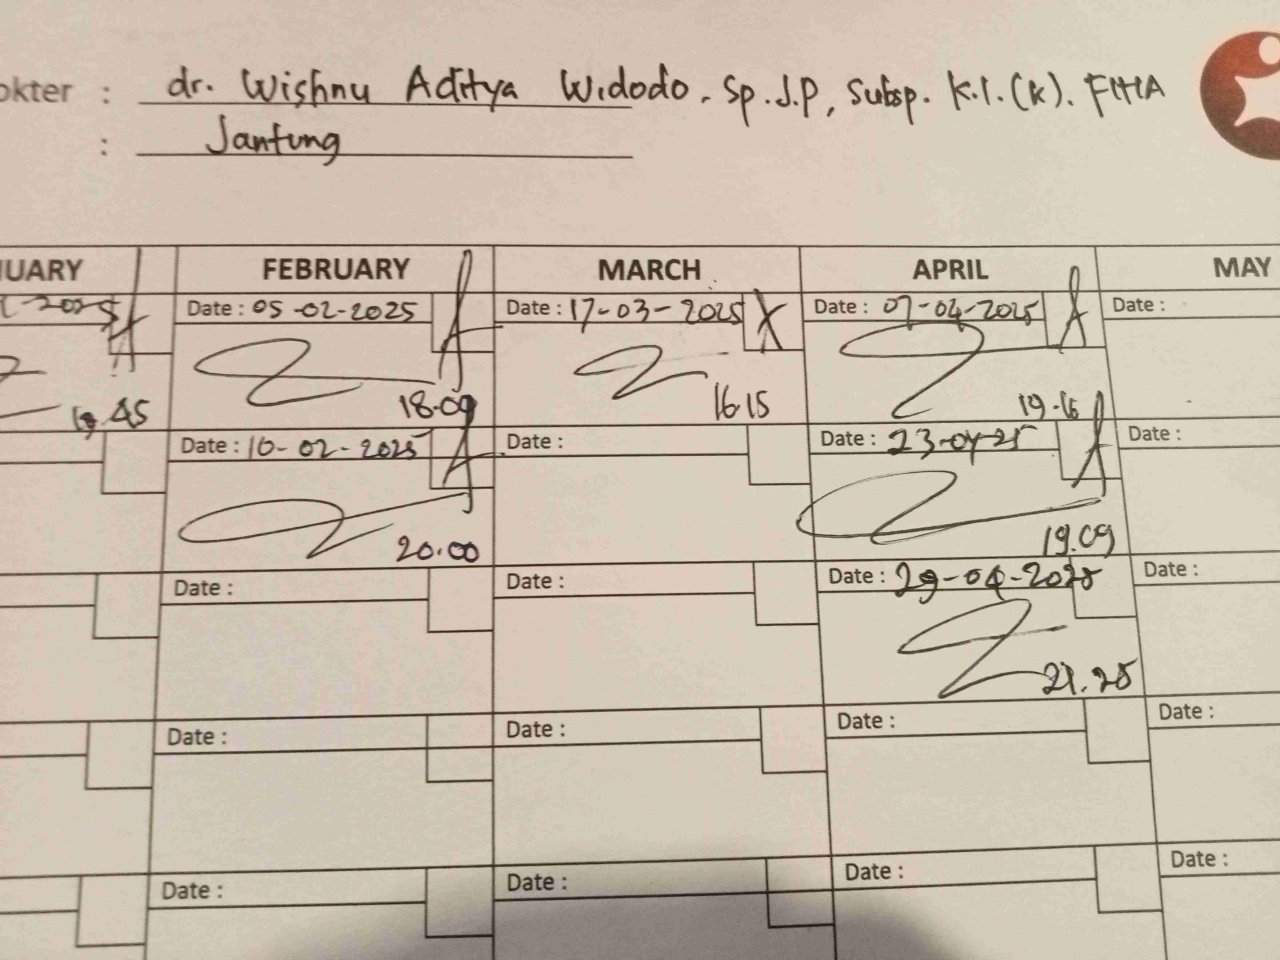 okter : dr. Wishnu Aditya Widodo. Sp.J.P, Subsp. K.I.(K). FIHA
: Jantung
UARY FEBRUARY MARCH APRIL MAY
2025 Date : 05-02-2025 Date : 17-03-2025 Date : 07-04-2025 Date :
.45 18.09 16.15 19.16
Date : 10-02-2025 Date : Date : 23-04-25 Date :
20.00 19.09
Date : Date : Date : 29-04-2025 Date :
21.25
Date : Date : Date : Date :
Date : Date : Date : Date :